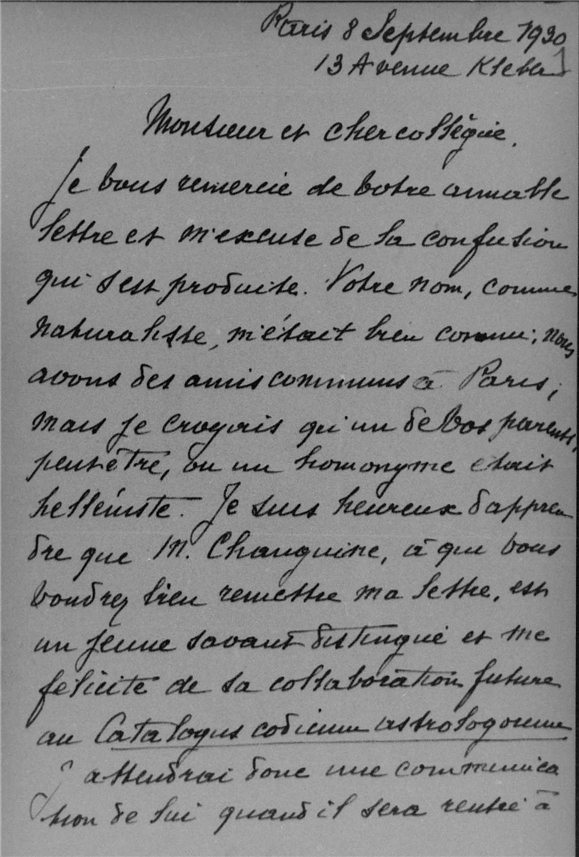 Paris 8 Septembre 1930
13 Avenue Kleber
Monsieur et cher collègue.
Je vous remercie de votre aimable
lettre et m'excuse de la confusion
qui s'est produite. Votre nom, comme
naturaliste, m'était bien connu; nous
avons des amis communs à Paris;
mais je croyais qu'un de vos parents,
peut être, ou un homonyme était
helléniste. Je suis heureux d'appren
dre que M. Changuine, à qui vous
voudrez bien remettre ma lettre, est
un jeune savant distingué et me
félicite de sa collaboration future
au Catalogus codicum astrologorum
J'attendrai donc une communica
tion de lui quand il sera rentré à